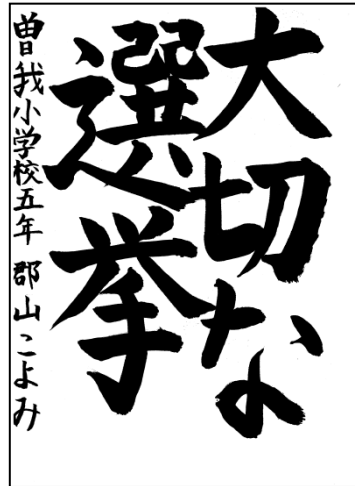 大切な
選挙
曽我小学校五年 郡山こよみ